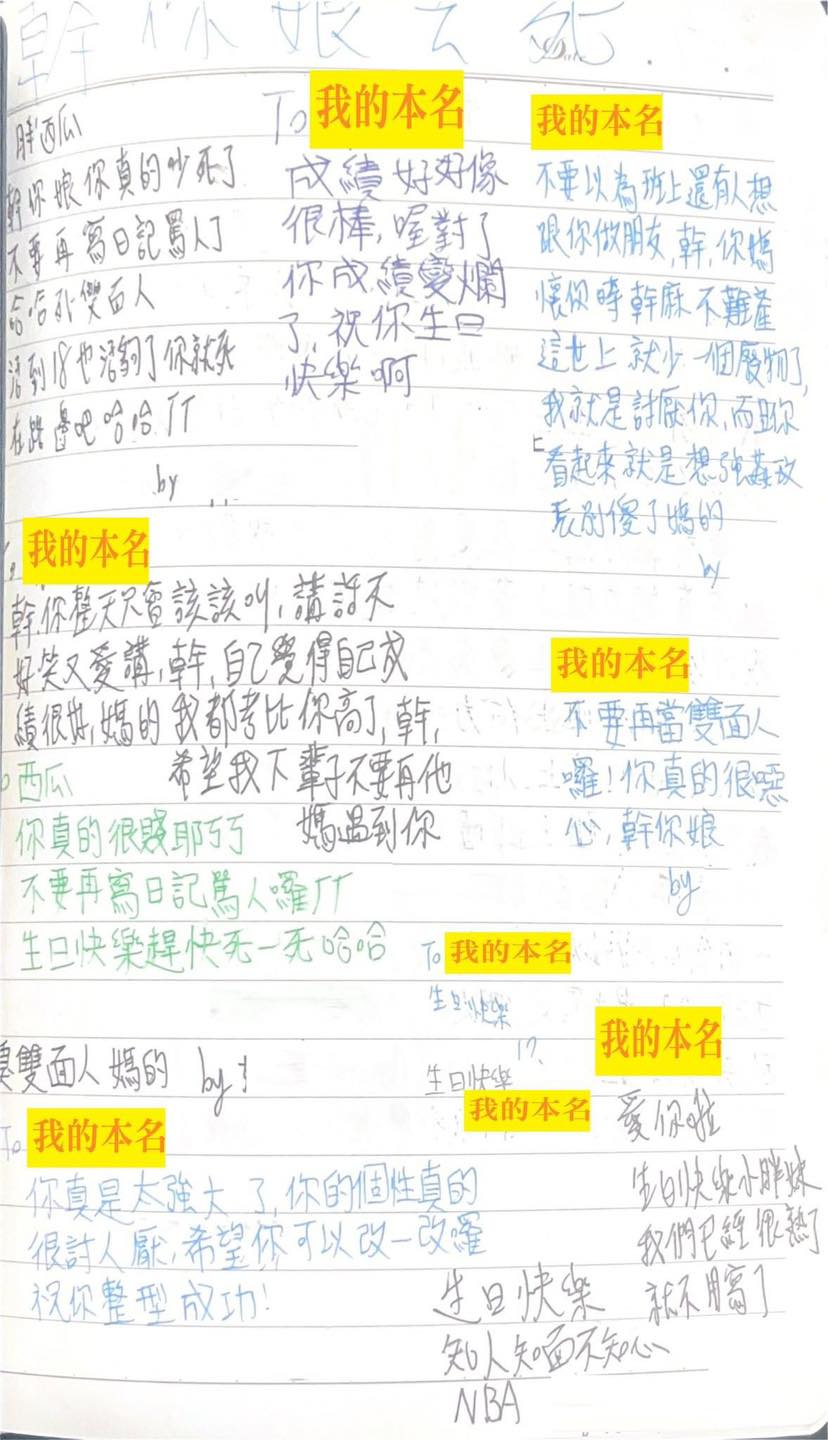 幹你娘去死
胖西瓜
幹你娘你真的吵死了
不要再寫日記罵人了
哈哈死雙面人
活到18也活夠了你就死
在路邊吧哈哈ㄏㄏ
by
To 我的本名
成績好好像
很棒,喔對了
你成績變爛
了,祝你生日
快樂啊
我的本名
不要以為班上還有人想
跟你做朋友,幹,你媽
懷你時幹麻不難產
這世上就少一個廢物了,
我就是討厭你,而且你
看起來就是想強姦政
長別傻了媽的
by
我的本名
幹,你整天只會該該叫,講話不
好笑又愛講,幹,自己覺得自己成
績很好,媽的我都考比你高了,幹,
希望我下輩子不要再他
媽遇到你
我的本名
不要再當雙面人
囉!你真的很噁
心,幹你娘
by
西瓜
你真的很賤耶ㄎㄎ
不要再寫日記罵人囉ㄏㄏ
生日快樂趕快死一死哈哈
To 我的本名
生日快樂
雙面人 媽的 by
生日快樂
我的本名
我的本名
愛你啦
生日快樂小胖妹
我們已經很熟了
就不用寫了
To 我的本名
你真是太強大了,你的個性真的
很討人厭,希望你可以改一改囉
祝你整型成功!
生日快樂
知人知面不知心
NBA